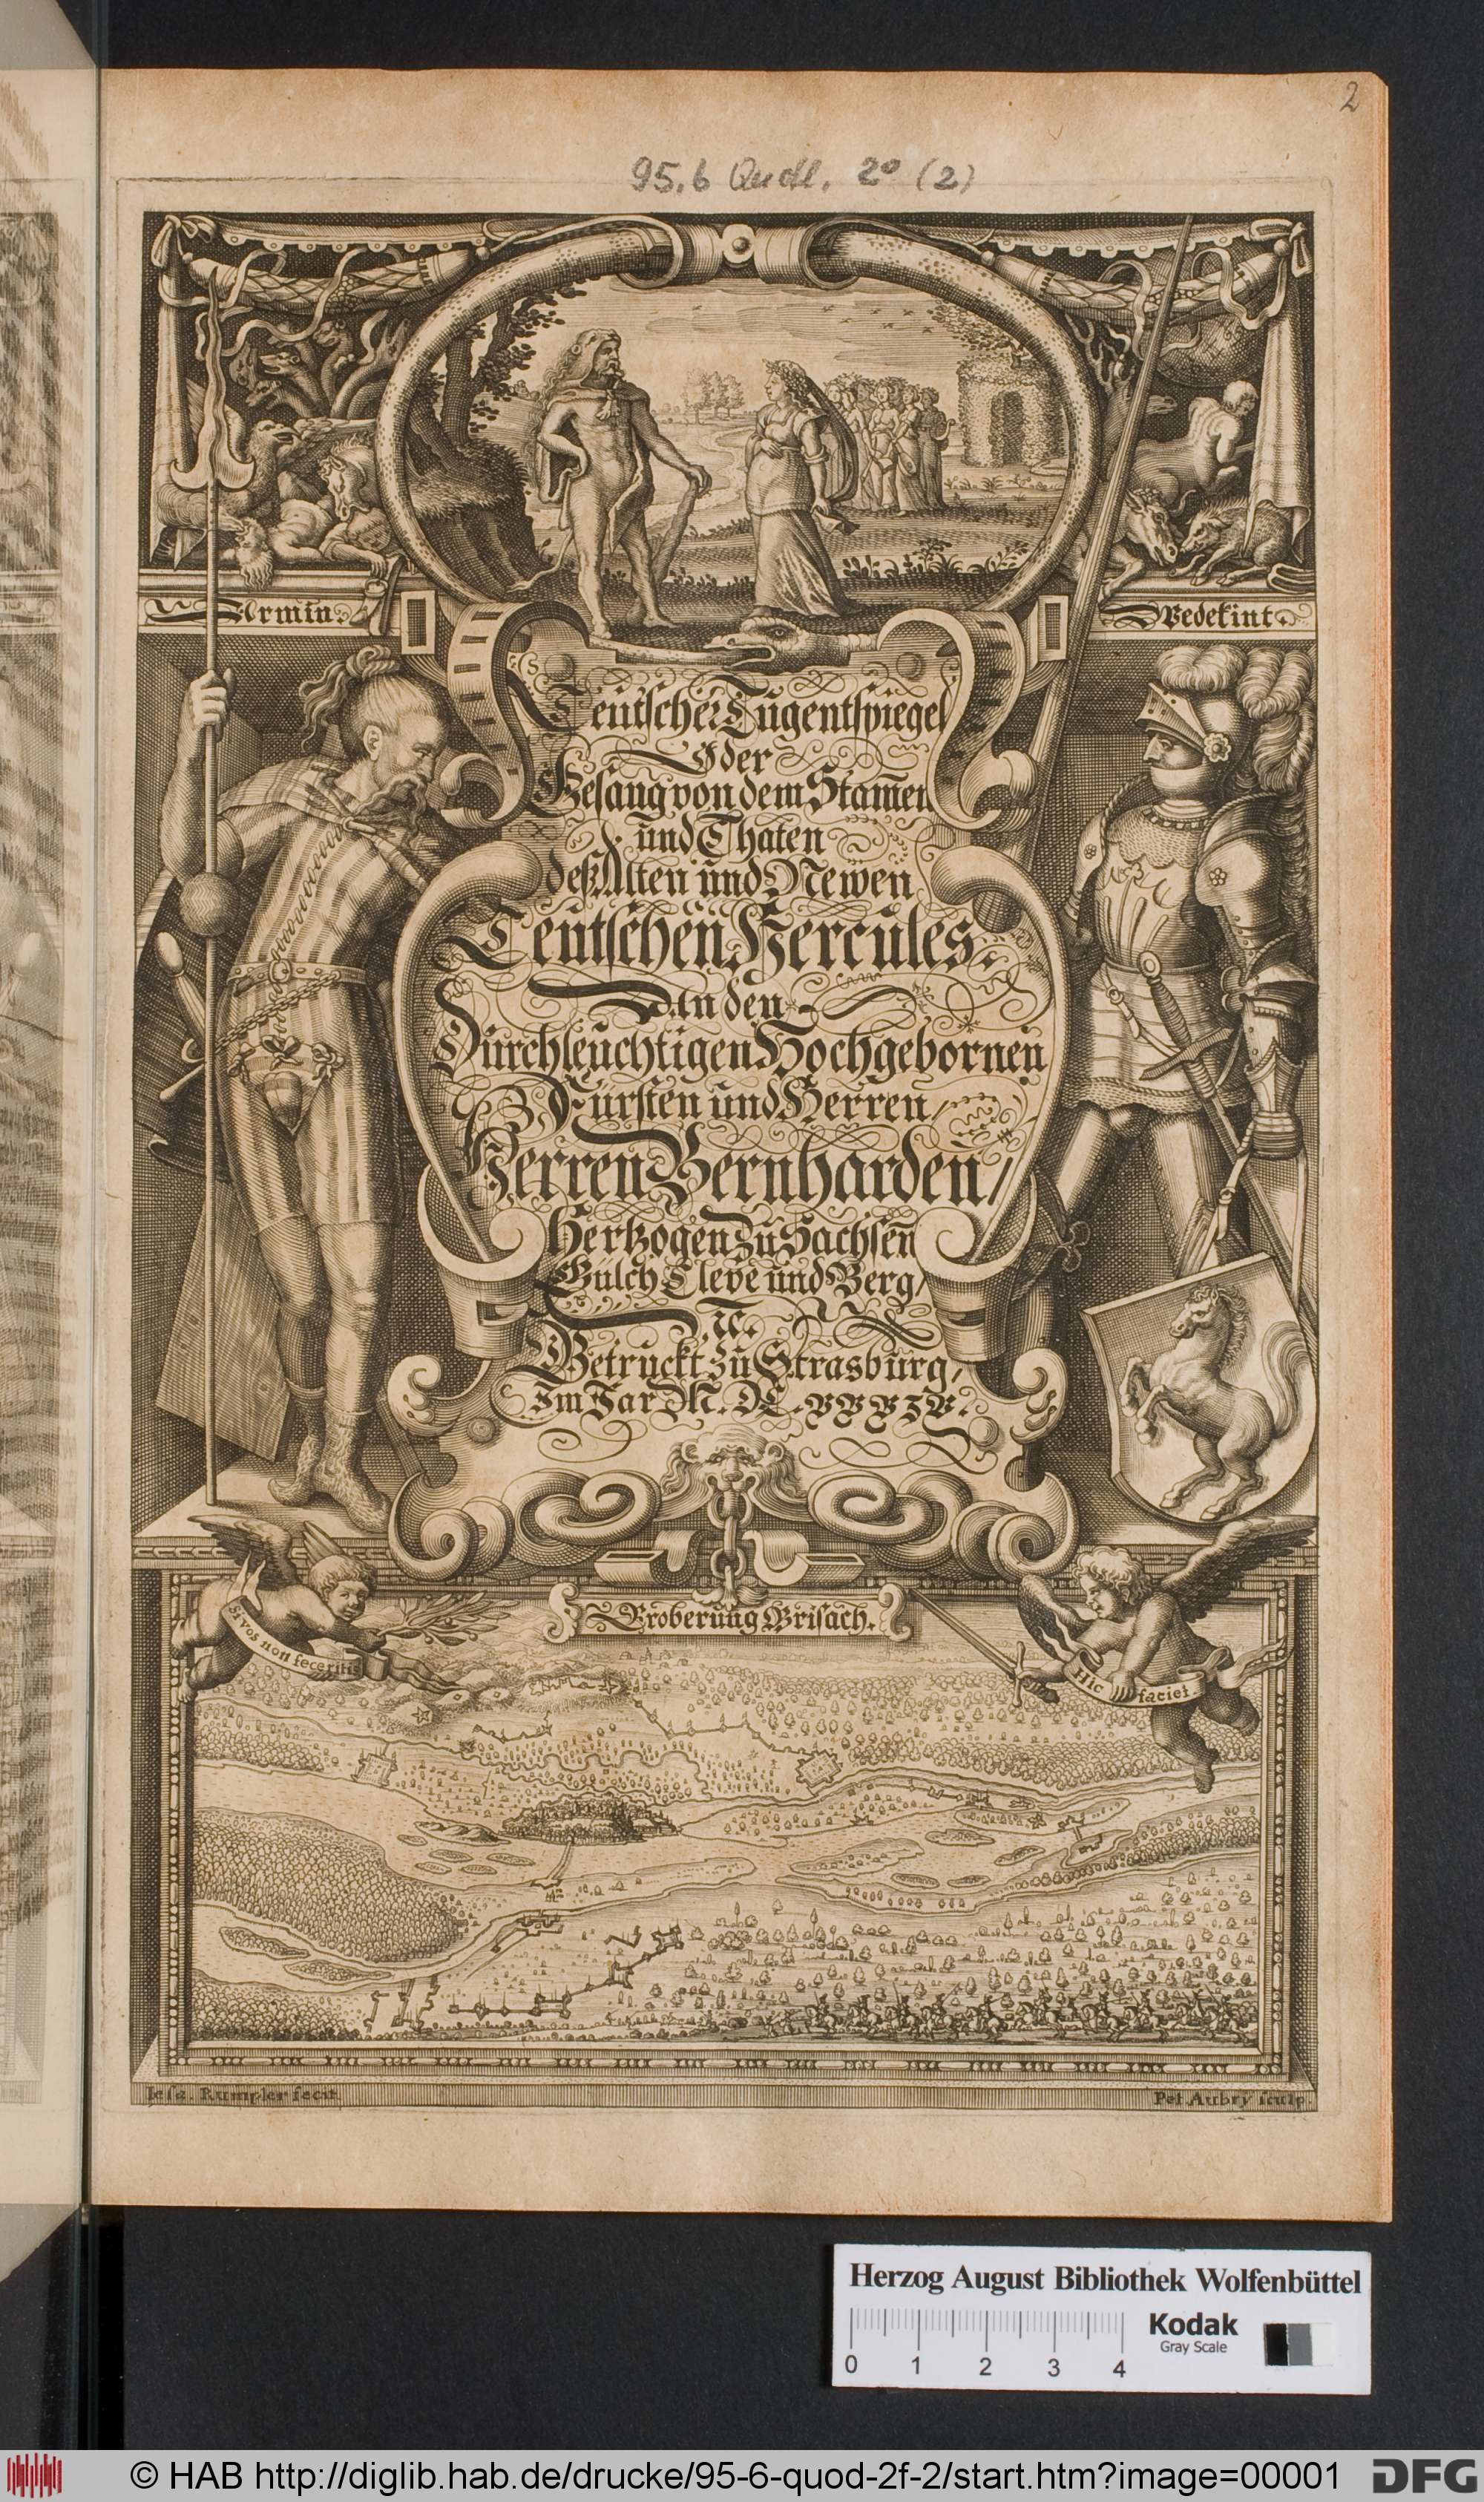 2
95.6 Quodl. 2° (2)
Armin.
Wedekint.
Teutscher Tugentspiegel
Oder
Gesang von dem Stam̄en
und Thaten
deß Alten und Newen
Teutschen Hercules.
An den
Durchleuchtigen Hochgebornen
Fürsten und Herren/
Herren Bernharden/
Hertzogen zu Sachsen̄
Gülch Cleve und Berg/
ꝛc.
Getruckt zu Strasburg/
Im Jar M. DC.
Eroberung Brisach.
Si vos non feceritis
Hic faciet.
Rumpler fecit.
Pet. Aubry sculp.
Herzog August Bibliothek Wolfenbüttel
0 1 2 3 4
Kodak
Gray Scale
© HAB http://diglib.hab.de/drucke/95-6-quod-2f-2/start.htm?image=00001
DFG